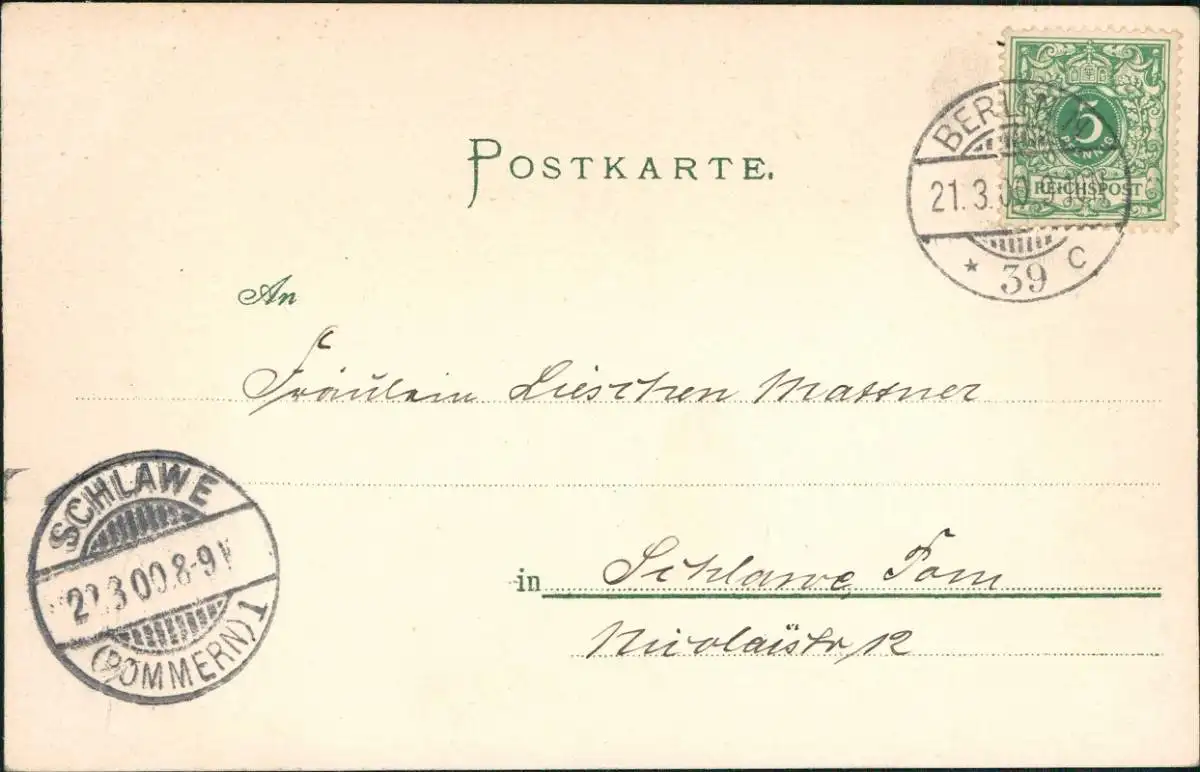 POSTKARTE.
5
PFENNIG
REICHSPOST
BERLIN N
21.3.00
* 39 C
An
Fräulein Lieschen Mattner
in Schlawe, Pom
Nicolaistr, 12
SCHLAWE
22.3.00.8-9V
(POMMERN) 1